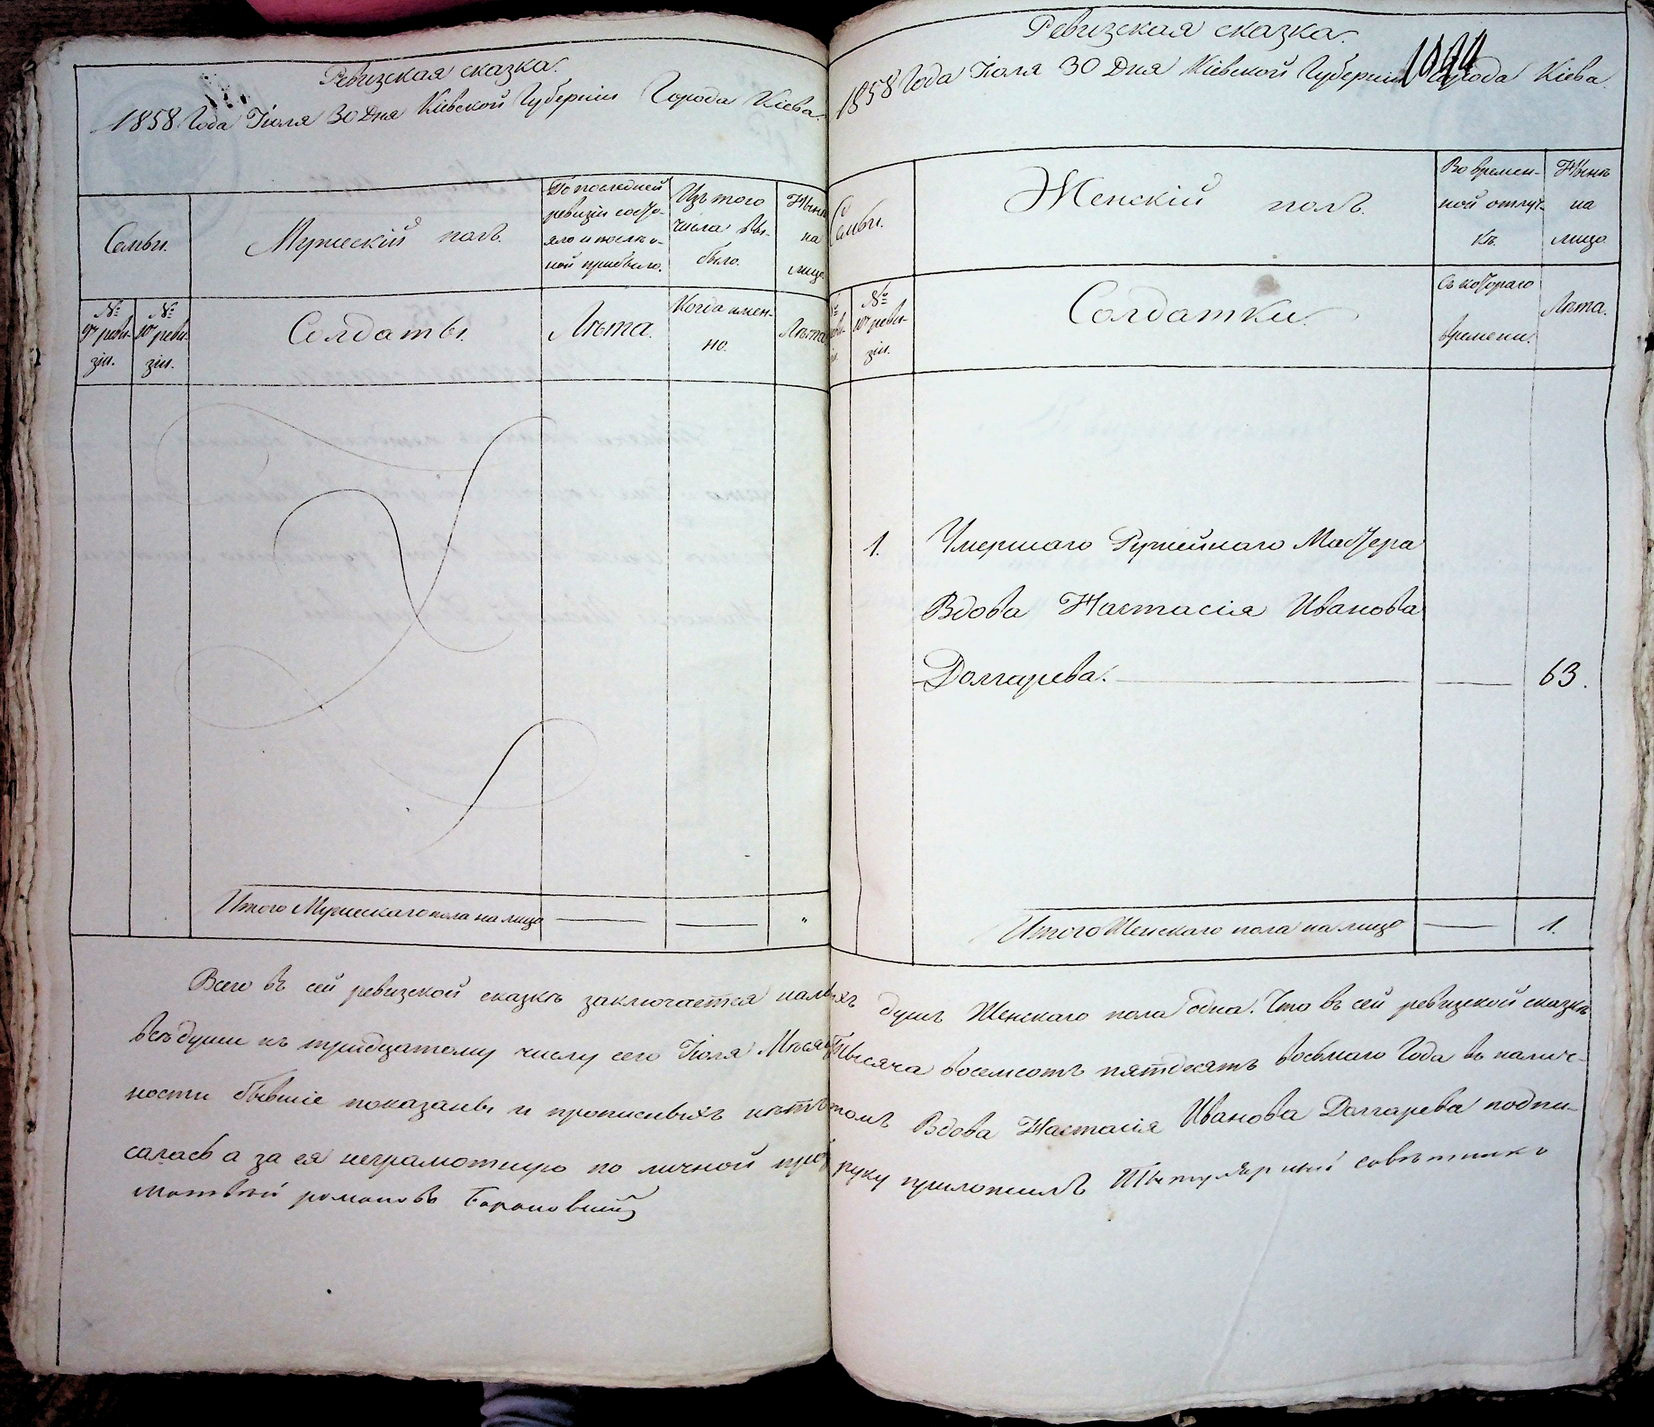 Ревизская сказка.
1858 Года Іюля 30 Дня Кіевской Губерніи Города Кіева.
Семьи.
Мужескій полъ.
По последней
ревизіи состо-
яло и после о-
ной прибыло.
Изъ того
числа вы-
было.
Нынѣ
на
лице
№
9й реви-
зіи.
№
10й реви-
зіи.
Солдаты.
Лѣта.
Когда имен-
но.
Лѣта
Итого Мужескаго пола на лицо
Ревизская сказка.
1858 Года Іюля 30 Дня Кіевской Губерніи Города Кіева.
Семьи.
Женскій полъ.
Во времен-
ной отлуч-
кѣ.
Нынѣ
на
лицо.
№
10й реви-
зіи.
Солдатки.
Съ котораго
времени.
Лѣта.
1. Умершаго Ружейнаго Мастера
Вдова Настасія Иванова
Долгарева. 63.
Итого Женскаго пола на лицо 1.
Всего въ сей ревизской сказкѣ заключается налицо душъ Женскаго пола одна. Что въ сей ревизской сказкѣ
всѣ души къ тридцатому числу сего Іюля Мѣсяца Тысяча восемсотъ пятдесятъ восьмаго Года въ налич-
ности бывшіе показаны и прописныхъ нѣтъ въ томъ Вдова Настасія Иванова Долгарева подпи-
салась а за ея неграмотную по личной прозбѣ руку приложилъ Титулярный совѣтникъ
Матвѣй романовъ